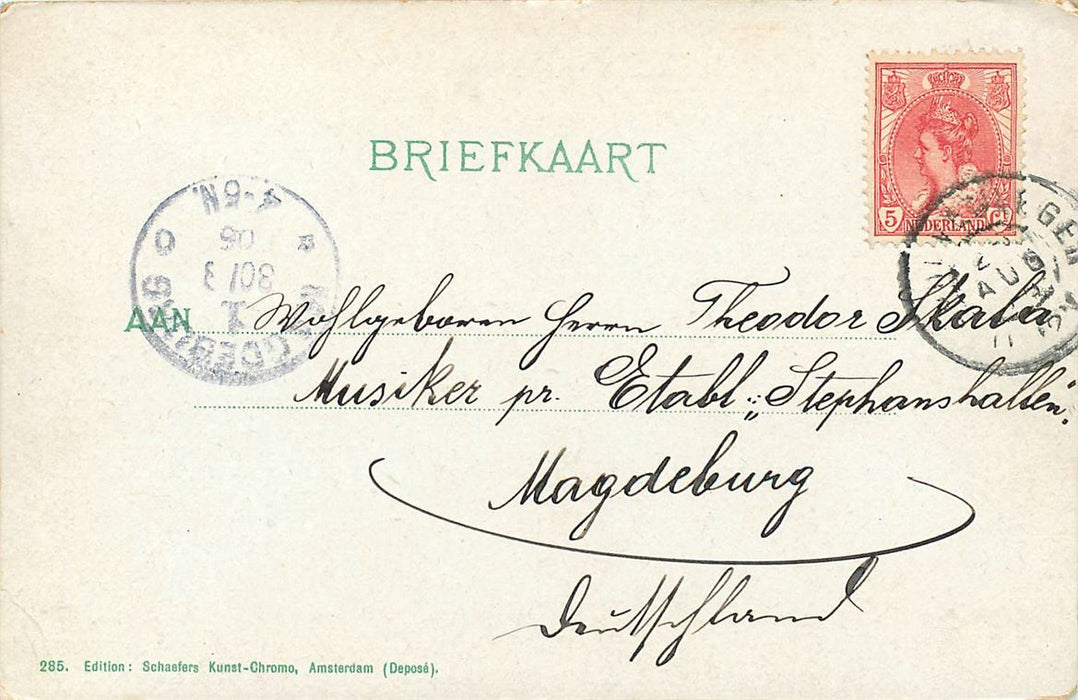 BRIEFKAART
5 NEDERLAND Ct
4-6 N.
06
30/8
1
AUG
AAN Wohlgeboren Herrn Theodor Skala
Musiker pr. Etabl. „Stephanshallen“
Magdeburg
Deutschland
285. Edition: Schaefers Kunst-Chromo, Amsterdam (Deposé).